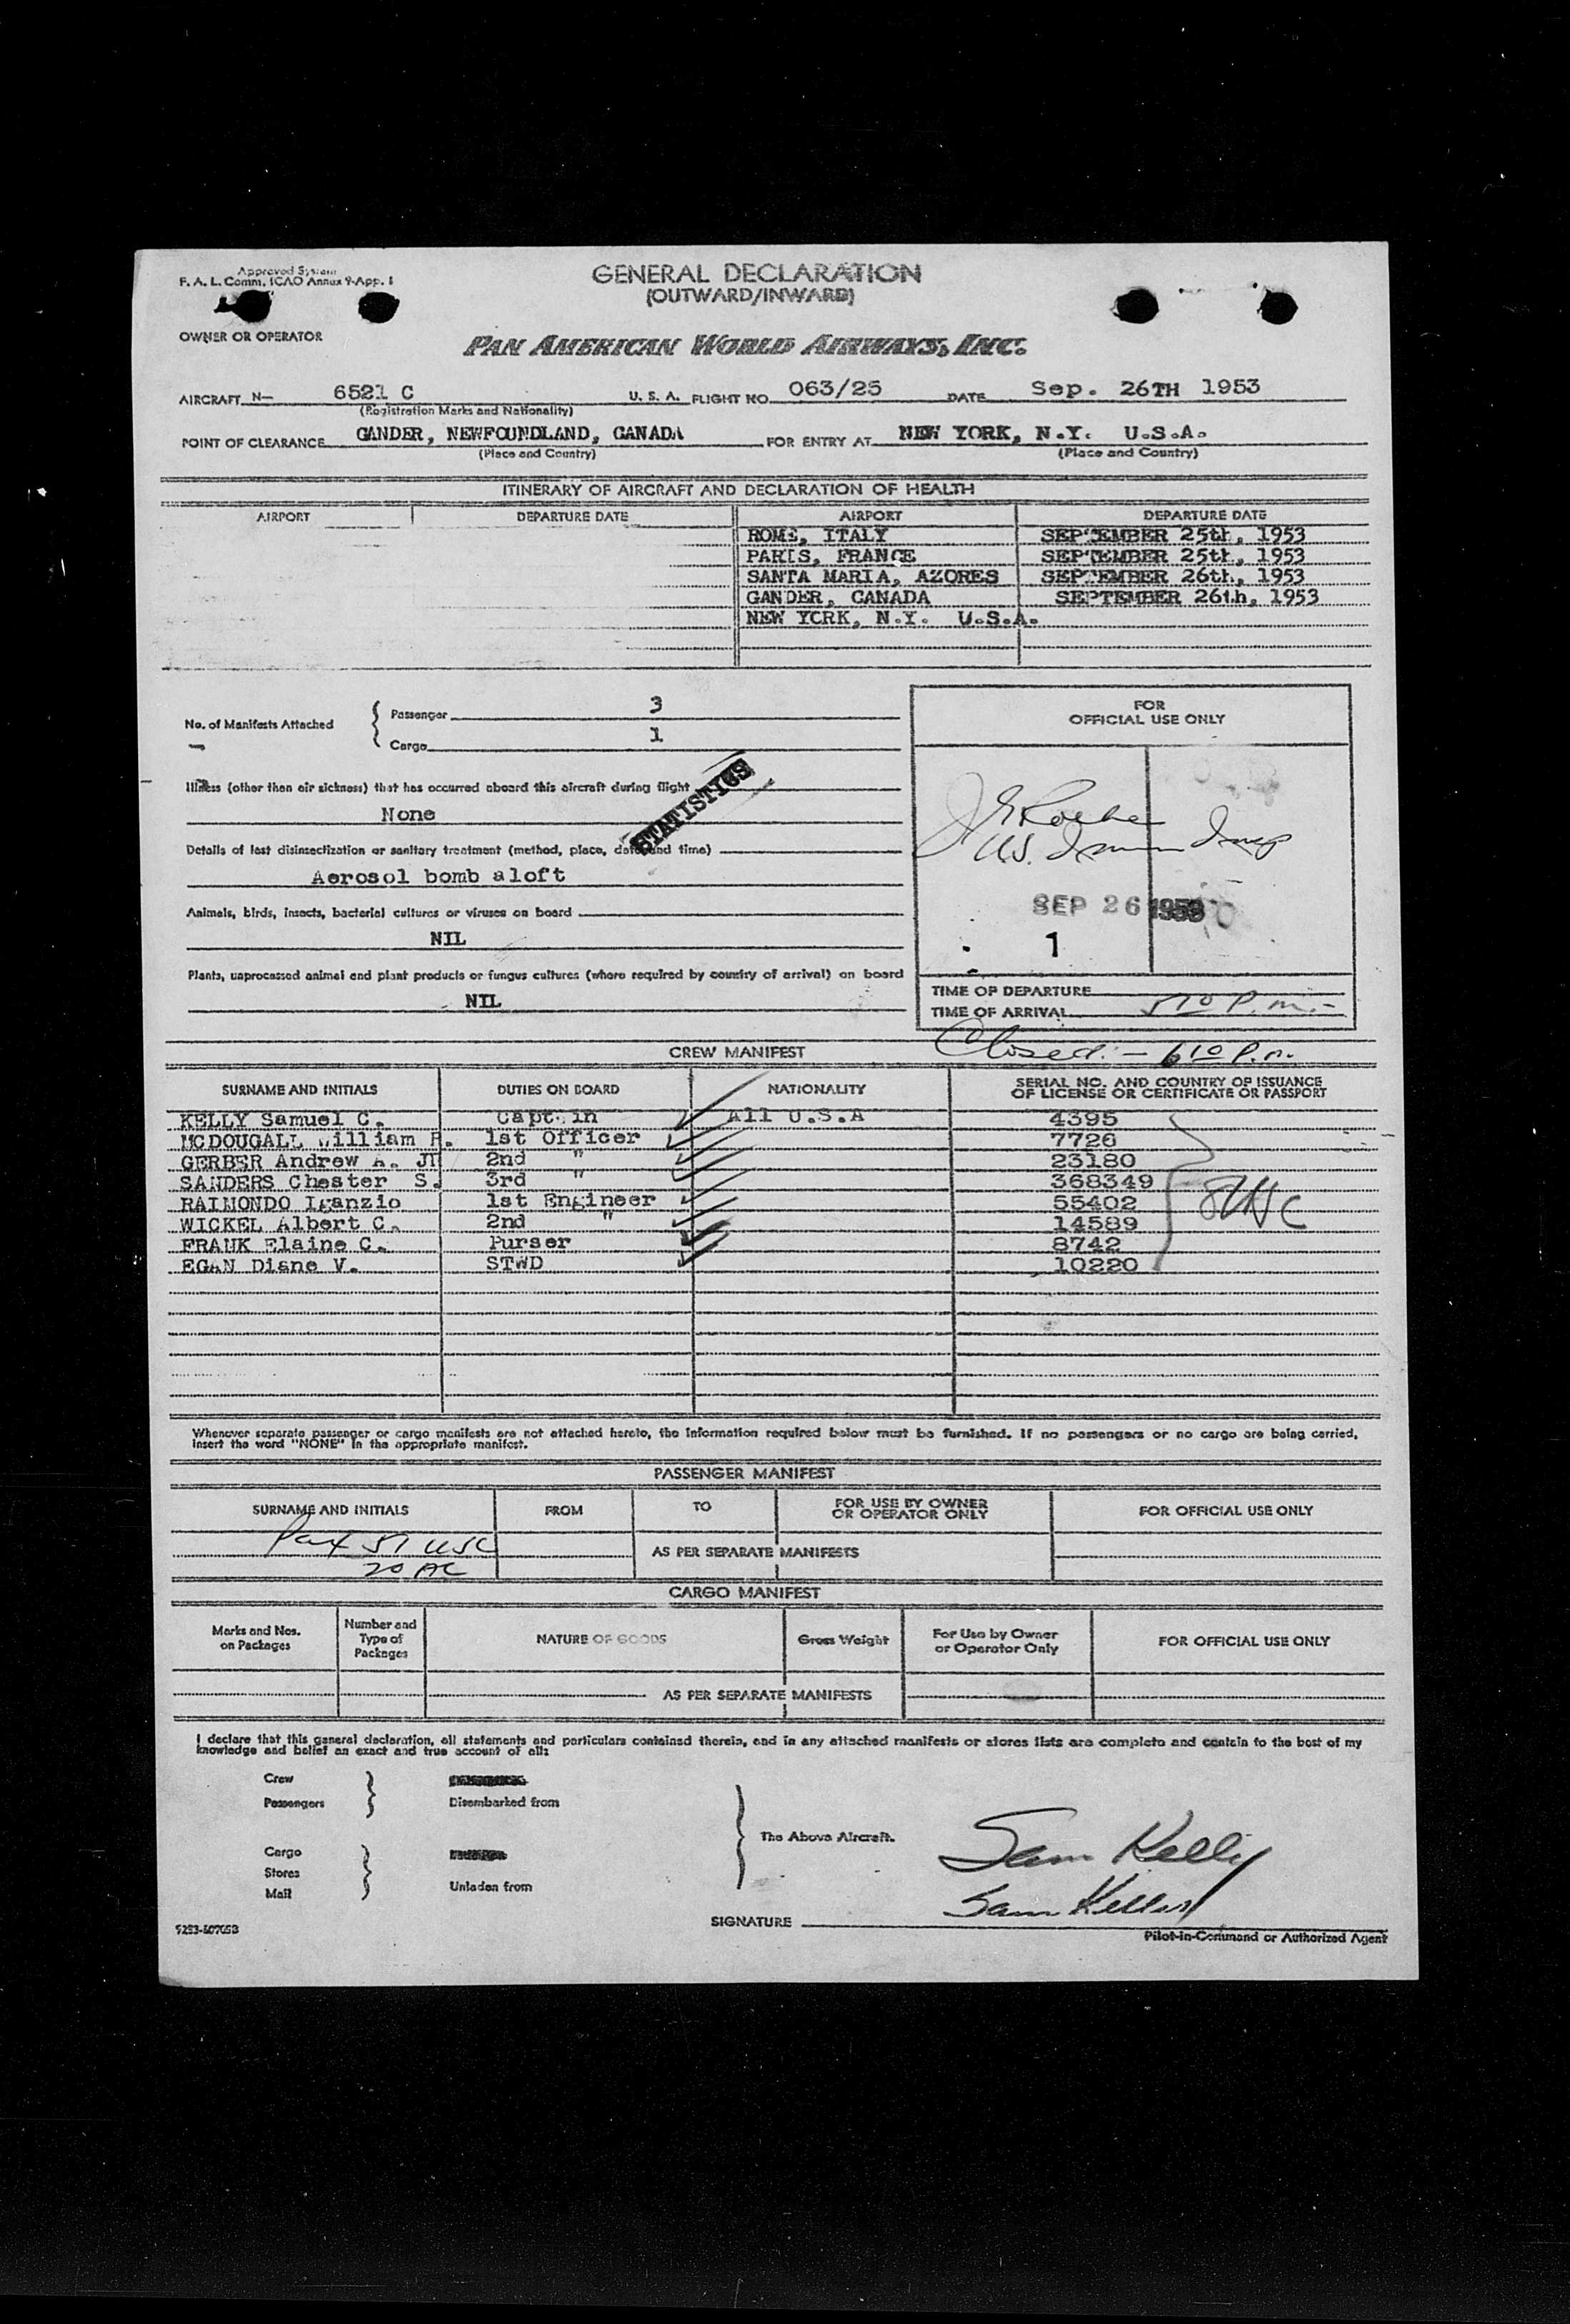 Approved System
F. A. L. Comm. ICAO Annux 9-App. 1
GENERAL DECLARATION
(OUTWARD/INWARD)
OWNER OR OPERATOR
PAN AMERICAN WORLD AIRWAYS, INC.
AIRCRAFT N— 6521 C U. S. A. FLIGHT NO. 063/25 DATE Sep. 26TH 1953
(Registration Marks and Nationality)
POINT OF CLEARANCE GANDER, NEWFOUNDLAND, CANADA FOR ENTRY AT NEW YORK, N.Y. U.S.A.
(Place and Country) (Place and Country)
ITINERARY OF AIRCRAFT AND DECLARATION OF HEALTH
AIRPORT DEPARTURE DATE AIRPORT DEPARTURE DATE
ROME, ITALY SEPTEMBER 25th, 1953
PARIS, FRANCE SEPTEMBER 25th, 1953
SANTA MARIA, AZORES SEPTEMBER 26th, 1953
GANDER, CANADA SEPTEMBER 26th, 1953
NEW YORK, N.Y. U.S.A.
No. of Manifests Attached
Passenger 3
Cargo 1
FOR
OFFICIAL USE ONLY
Illness (other than air sickness) that has occurred aboard this aircraft during flight
STATISTICS
None
Details of last disinsectization or sanitary treatment (method, place, date and time)
Aerosol bomb aloft
Animals, birds, insects, bacterial cultures or viruses on board
NIL
Plants, unprocessed animal and plant products or fungus cultures (where required by country of arrival) on board
NIL
U.S. Immn Insp
SEP 26 1953
1
TIME OF DEPARTURE
TIME OF ARRIVAL 510 P.m.-
Closed:- 610 P.m.
CREW MANIFEST
SURNAME AND INITIALS DUTIES ON BOARD NATIONALITY SERIAL NO. AND COUNTRY OF ISSUANCE
OF LICENSE OR CERTIFICATE OR PASSPORT
KELLY Samuel C. Captain All U.S.A 4395
MCDOUGALL William R. 1st Officer 7726
GERBER Andrew A. JR 2nd " 23180
SANDERS Chester S. 3rd " 368349
RAIMONDO Iganzio 1st Engineer 55402
WICKEL Albert C. 2nd " 14589
FRANK Elaine C. Purser 8742
EGAN Diane V. STWD 10220
Whenever separate passenger or cargo manifests are not attached hereto, the information required below must be furnished. If no passengers or no cargo are being carried,
insert the word "NONE" in the appropriate manifest.
PASSENGER MANIFEST
SURNAME AND INITIALS FROM TO FOR USE BY OWNER
OR OPERATOR ONLY FOR OFFICIAL USE ONLY
Pax 51 USC
AS PER SEPARATE MANIFESTS
20 AC
CARGO MANIFEST
Marks and Nos.
on Packages
Number and
Type of
Packages
NATURE OF GOODS
Gross Weight
For Use by Owner
or Operator Only
FOR OFFICIAL USE ONLY
AS PER SEPARATE MANIFESTS
I declare that this general declaration, all statements and particulars contained therein, and in any attached manifests or stores lists are complete and contain to the best of my
knowledge and belief an exact and true account of all:
Crew
Passengers Disembarked from
The Above Aircraft.
Cargo
Stores
Mail Unladen from
Sam Kelly
Sam Kelly
SIGNATURE
Pilot-in-Command or Authorized Agent